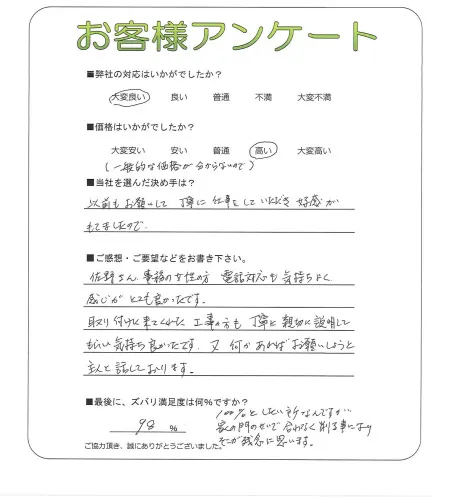 お客様アンケート
■弊社の対応はいかがでしたか？
大変良い 良い 普通 不満 大変不満
■価格はいかがでしたか？
大変安い 安い 普通 高い 大変高い
(一般的な価格が分からないので)
■当社を選んだ決め手は？
以前もお願いして 丁寧に仕事をしていただき 好感が
もてましたので。
■ご感想・ご要望などをお書き下さい。
佐野さん、事務の女性の方 電話対応も気持ちよく
感じがとても良かったです。
取り付けに来てくれた 工事の方も 丁寧に親切に説明して
もらい気持ち良かったです。又 何かあればお願いしようと
主人と話しております。
■最後に、ズバリ満足度は何%ですか？
98 %
100%としたい所なんですが
家の門のせいで合わなく削る事になり
そこが残念に思います。
ご協力頂き、誠にありがとうございました。